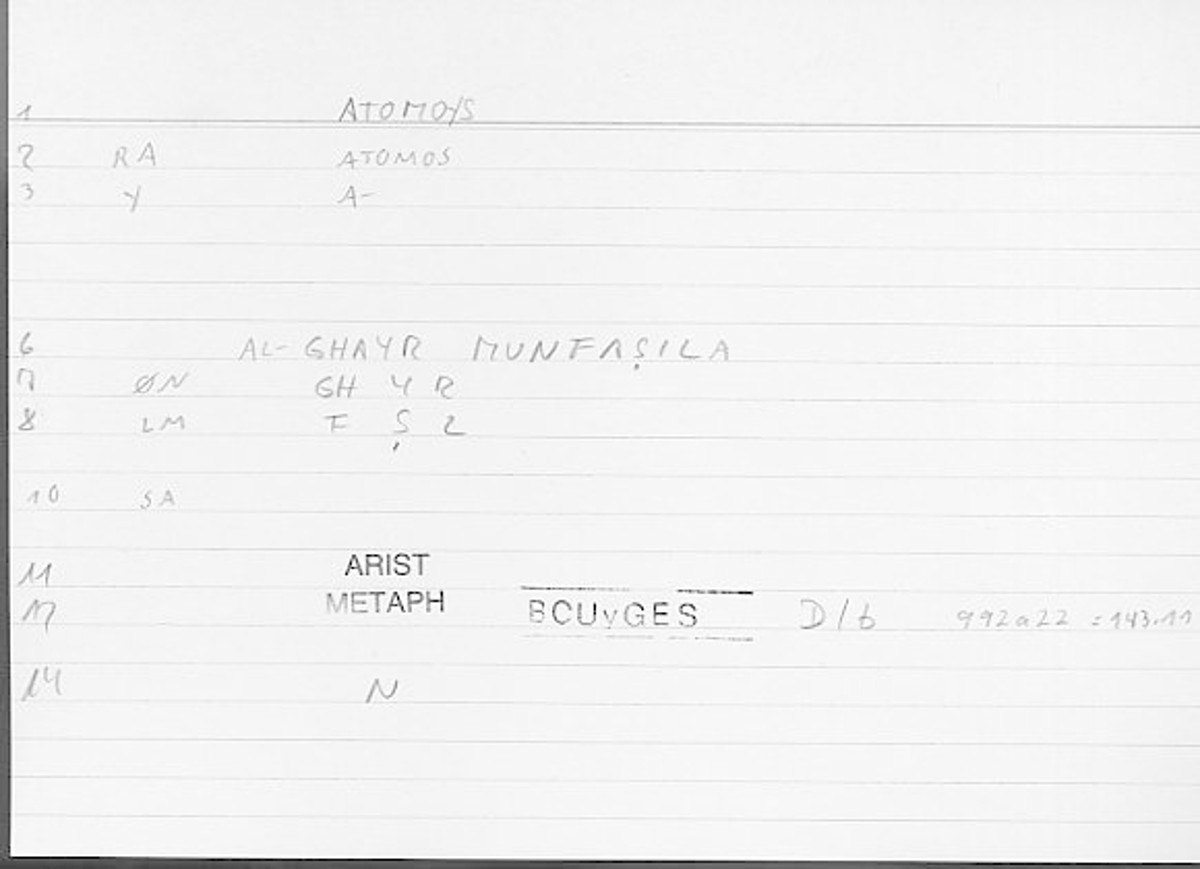 1 ATOMOYS
2 RA ATOMOS
3 Y A-
6 AL-GHAYR MUNFAṢILA
7 ØN GH Y R
8 LM F Ṣ L
10 SA
11 ARIST
12 METAPH BOUYGES D/b 992a22 = 143.11
14 N